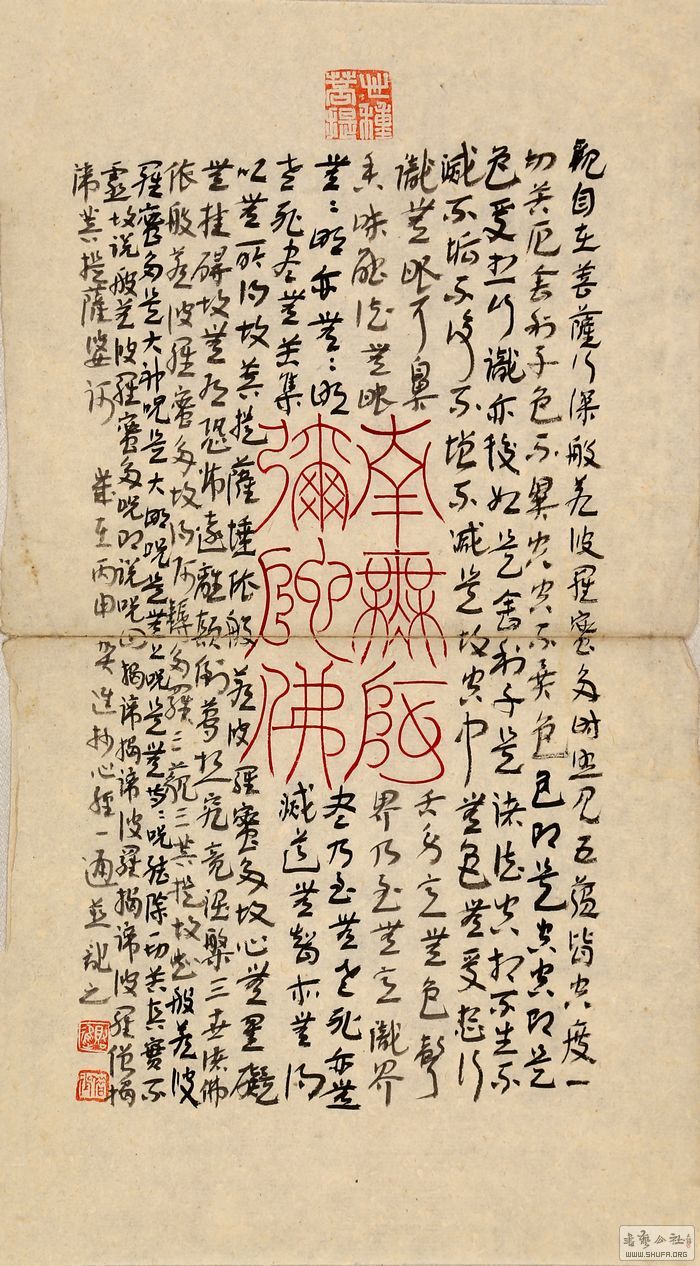 世種菩提
觀自在菩薩行深般若波羅蜜多時照見五蘊皆空度一
切苦厄舍利子色不異空空不異色色即是空空即是
色受想行識亦復如是舍利子是諸法空相不生不
滅不垢不淨不增不減是故空中無色無受想行
識無眼耳鼻舌身意無色聲
香味觸法無眼界乃至無意識界
無〻明亦無〻明盡乃至無老死亦無
老死盡無苦集滅道無智亦無得
以無所得故菩提薩埵依般若波羅蜜多故心無罣礙
無挂礙故無有恐怖遠離顛倒夢想究竟涅槃三世諸佛
依般若波羅蜜多故得阿耨多羅三藐三菩提故知般若波
羅蜜多是大神咒是大明咒是無上咒是無等〻咒能除一切苦真實不
虛故說般若波羅蜜多咒即說咒曰揭諦揭諦波羅揭諦波羅僧揭
諦菩提薩婆訶 歲在丙申 抄心經一通並記之
南無阿
彌陀佛
WWW.SHUFA.ORG